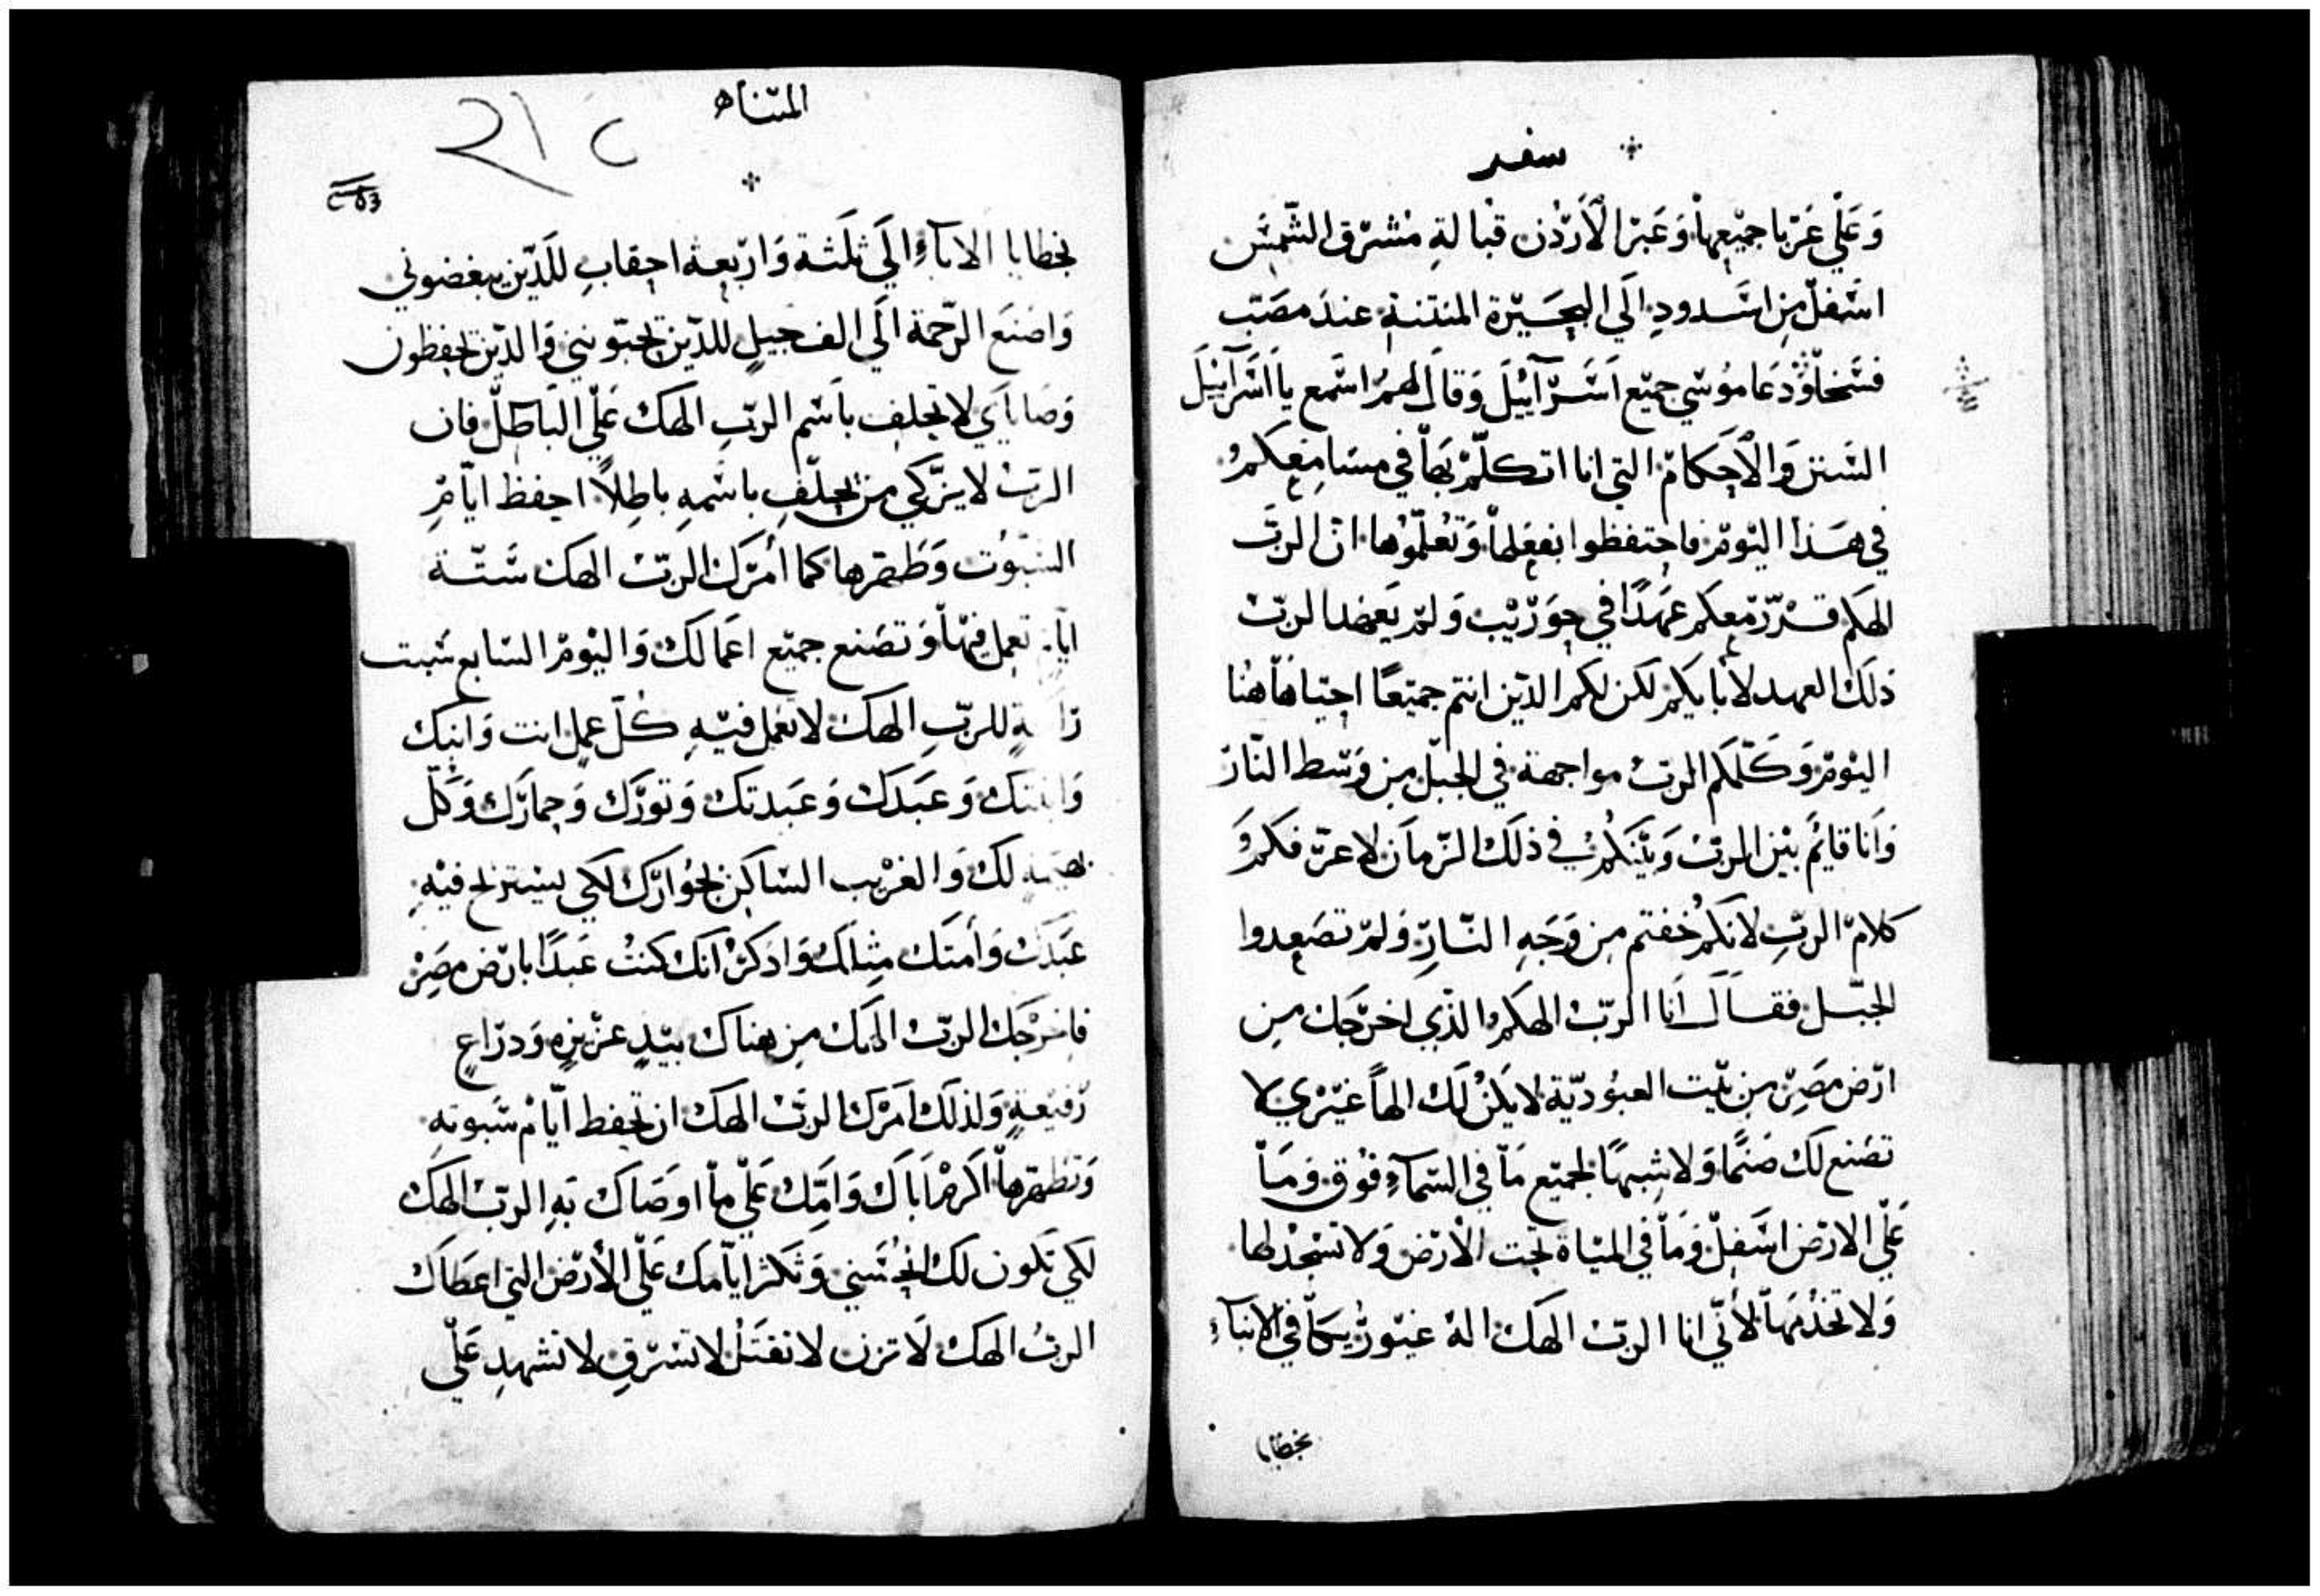 سفر
وَعَلَي عَرَبا جميْعها وَعَبرَ الأَرّدُن قبالةِ مشرق الشّمسَ
اسَفل من اسَدودِ الَي البحَيرّة المنتنة عند مصَبّ
فسَخا ودَعا موُسَي جميّع اسَرآييْل وَقال لهمُ اسَمع يا اسَرآييل
السَنن وَالأحكام التي انا اتكلّم بَها في مسَامعكمُ
في هَذا اليَومْ فاحتفظوا بفعَلها وَتعُلّموُها انّ الربَّ
الهكَم قرّر معكم عهَدًا في حوَرّيْب وَلم يَعهد الربّ
ذلكَ العهد لأبايكم لكن لكم الذيّن انتم جميَعًا احيا هاهنُا
اليوَم وَكلّمكم الربُ مواجهة في الجبّل من وَسّط النّار
وَانا قايمُ بيْن الربّ وَبيْنكمُ في ذلكَ الزّمان لاعرّفكمُ
كلامّ الربِّ لانكمُ خفتم من وَجَهِ النّارِ وَلمّ تصَعدوا
الجبّل فقال انا الربّ الهكم الذّي اخرّجَك من
ارّض مصَرّ من بيّت العبوُديّة لا يكنُ لكَ الهاً غيرْي لا
تصَنع لك صَنمًا وَلا شبهًا لجميّع مَا في السّمآءِ فوُق وَمَا
عَلَي الارّض اسَفل وَمَا في الميَاة تحت الأرّض وَلا تسَجدْ لها
وَلا تخدُمَها لأنّي انا الربّ الهَكَ الهُ غيوُرّ يكافي الابنآءِ
بخطايا
المثناه
بخطايا الابآءِ الَي ثلَثة وَارّبعة احقابِ للذيّن يبغضوني
وَاصَنعَ الرّحمة الَي الف جيلٍ للذيّن يحبّونني وَالذيّن يحفظون
وَصَايايَ لا تحلف باسَم الربّ الهكَ عَلَي الباطلّ فان
الربُ لا يزّكي من يحلّف باسَمهِ باطِلاً احفظ ايّامِ
السَبوُت وَطَهرها كما أمرَك الربّ الهكَ سَتّة
تعمل فيْها وَتصَنع جميّع اعَمالكَ وَاليْومّ السَابع سَبت
للربِّ الهكَ لا تعَمل فيْهِ كلّ عمل انت وَابنكَ
وَابنتكَ وَعبَدكَ وَعبَدتكَ وَثورّك وَحمارّك وَكلّ
لكَ وَالغرْيب السَاكن بجوُارّكَ لكي يسَترْيح فيْهِ
عبَدَكَ وَأمتَك مثِلكَ وَاذكرْ انكَ كنتُ عَبَدًا بارّض مصَرّ
فاخرْجَك الربّ الهكَ من هناك بيَدٍ عزْيزه وَذرّاعٍ
رّفيَعةٍ وَلذلكَ امَركَ الربّ الهكَ ان تحفظ ايّامْ سَبوتهِ
وَتطهّرها اكرمْ ابَاكَ وَامّكَ عَلَي ما اوصَاكَ بَهِ الربّ الهكَ
لكي تَكون لكَ الحُسَني وَتكثر ايّامكَ عَلَي الأرّض التي اعطَاكَ
الربُ الهكَ لا تزن لا تقتَلُ لا تسَرّق لا تشهدِ عَلَي